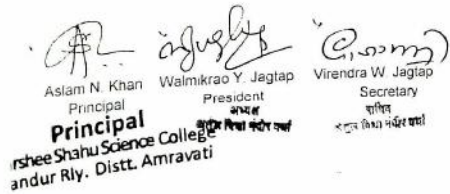 Aslam N. Khan
Principal
Principal
rshee Shahu Science College
andur Rly. Distt. Amravati
Walmikrao Y. Jagtap
President
अध्यक्ष
Virendra W. Jagtap
Secretary
सचिव